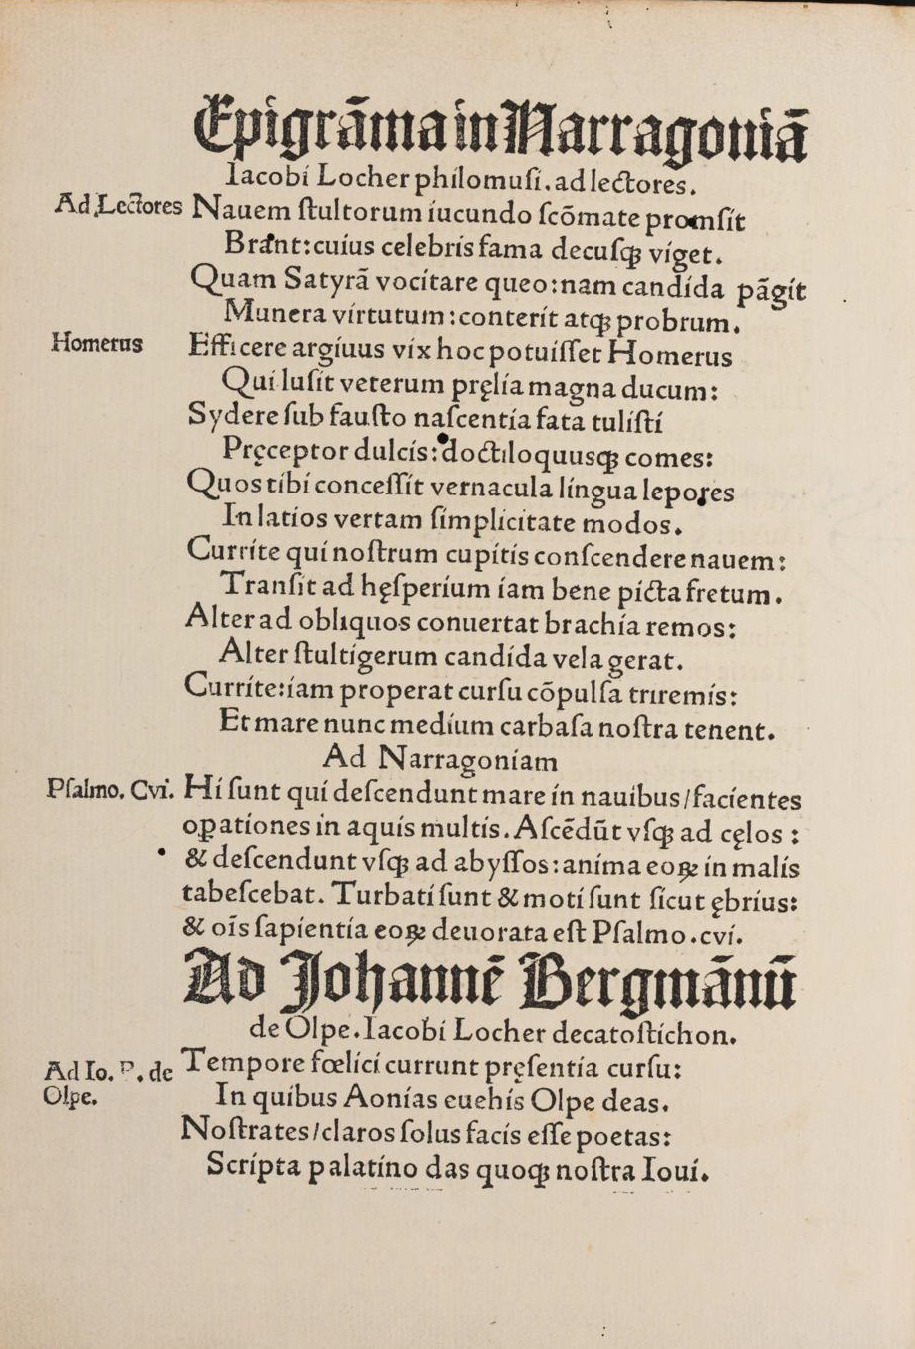 Epigrãma in Narragoniã
Iacobi Locher philomuſi. ad lectores.
Ad Lectores Nauem ſtultorum iucundo ſcõmate promſit
Brant: cuius celebris fama decuſqꝫ viget.
Quam Satyrã vocitare queo: nam candida pãgit
Munera virtutum: conterit atqꝫ probrum.
Homerus Efficere argiuus vix hoc potuiſſet Homerus
Qui luſit veterum pręlia magna ducum:
Sydere ſub fauſto naſcentia fata tuliſti
Pręceptor dulcis: doctiloquusqꝫ comes:
Quos tibi conceſſit vernacula lingua lepores
In latios vertam ſimplicitate modos.
Currite qui noſtrum cupitis conſcendere nauem:
Tranſit ad hęſperium iam bene picta fretum.
Alter ad obliquos conuertat brachia remos:
Alter ſtultigerum candida vela gerat.
Currite: iam properat curſu cõpulſa triremis:
Et mare nunc medium carbaſa noſtra tenent.
Ad Narragoniam
Pſalmo. Cvi. Hi ſunt qui deſcendunt mare in nauibus/facientes
oꝑationes in aquis multis. Aſcẽdũt vſqꝫ ad cęlos:
& deſcendunt vſqꝫ ad abyſſos: anima eoꝝ in malis
tabeſcebat. Turbati ſunt & moti ſunt ſicut ębrius:
& oĩs ſapientia eoꝝ deuorata eſt Pſalmo. cvi.
Ad Johannẽ Bergmãnũ
de Olpe. Iacobi Locher decatoſtichon.
Ad Io. P. de Tempore fœlici currunt pręſentia curſu:
Olpe. In quibus Aonias euehis Olpe deas.
Noſtrates/claros ſolus facis eſſe poetas:
Scripta palatino das quoqꝫ noſtra Ioui.